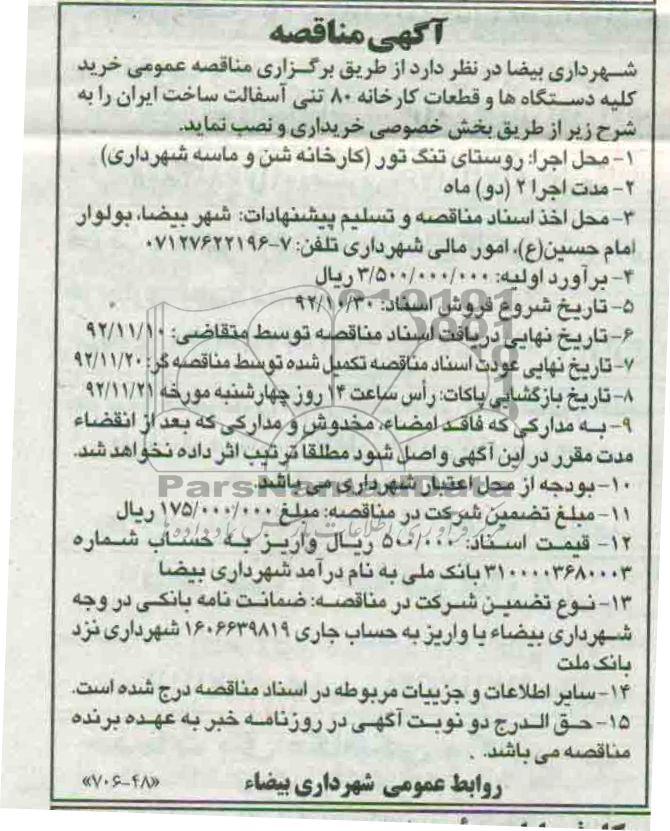 آگهی مناقصه
شهرداری بیضا در نظر دارد از طریق برگزاری مناقصه عمومی خرید
کلیه دستگاه ها و قطعات کارخانه ۸۰ تنی آسفالت ساخت ایران را به
شرح زیر از طریق بخش خصوصی خریداری و نصب نماید.
۱- محل اجرا: روستای تنگ تور (کارخانه شن و ماسه شهرداری)
۲- مدت اجرا ۲ (دو) ماه
۳- محل اخذ اسناد مناقصه و تسلیم پیشنهادات: شهر بیضا، بولوار
امام حسین(ع)، امور مالی شهرداری تلفن: ۷-۰۷۱۲۷۶۲۲۱۹۶
۴- برآورد اولیه: ۳/۵۰۰/۰۰۰/۰۰۰ ریال
۵- تاریخ شروع فروش اسناد: ۹۲/۱۰/۳۰
۶- تاریخ نهایی دریافت اسناد مناقصه توسط متقاضی: ۹۲/۱۱/۱۰
۷- تاریخ نهایی عودت اسناد مناقصه تکمیل شده توسط مناقصه گر: ۹۲/۱۱/۲۰
۸- تاریخ بازگشایی پاکات: رأس ساعت ۱۴ روز چهارشنبه مورخه ۹۲/۱۱/۲۱
۹- به مدارکی که فاقد امضاء، مخدوش و مدارکی که بعد از انقضاء
مدت مقرر در این آگهی واصل شود مطلقا ترتیب اثر داده نخواهد شد.
۱۰- بودجه از محل اعتبار شهرداری می باشد.
ParsNamadData
۱۱- مبلغ تضمین شرکت در مناقصه: مبلغ ۱۷۵/۰۰۰/۰۰۰ ریال
۱۲- قیمت اسناد: ۵۰۰/۰۰۰ ریال واریز به حساب شماره
۳۱۰۰۰۰۳۶۸۰۰۰۳ بانک ملی به نام درآمد شهرداری بیضا
۱۳- نوع تضمین شرکت در مناقصه: ضمانت نامه بانکی در وجه
شهرداری بیضاء یا واریز به حساب جاری ۱۶۰۶۶۳۹۸۱۹ شهرداری نزد
بانک ملت
۱۴- سایر اطلاعات و جزییات مربوطه در اسناد مناقصه درج شده است.
۱۵- حق الدرج دو نوبت آگهی در روزنامه خبر به عهده برنده
مناقصه می باشد.
روابط عمومی شهرداری بیضاء
«۷۰۶-۴۸»